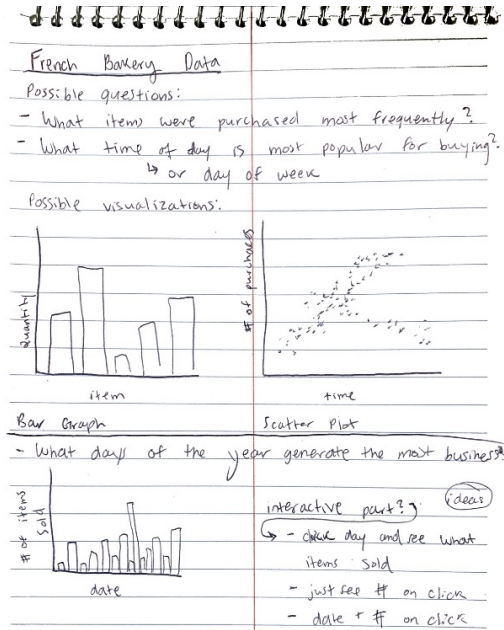 French Bakery Data
Possible questions:
- What items were purchased most frequently?
- What time of day is most popular for buying?
↳ or day of week
Possible visualizations:
Quantity
item
# of purchases
time
Bar Graph
Scatter Plot
- What days of the year generate the most business?
# of items sold
date
ideas
interactive part?
↳ - click day and see what
items sold
- just see # on click
- date + # on click